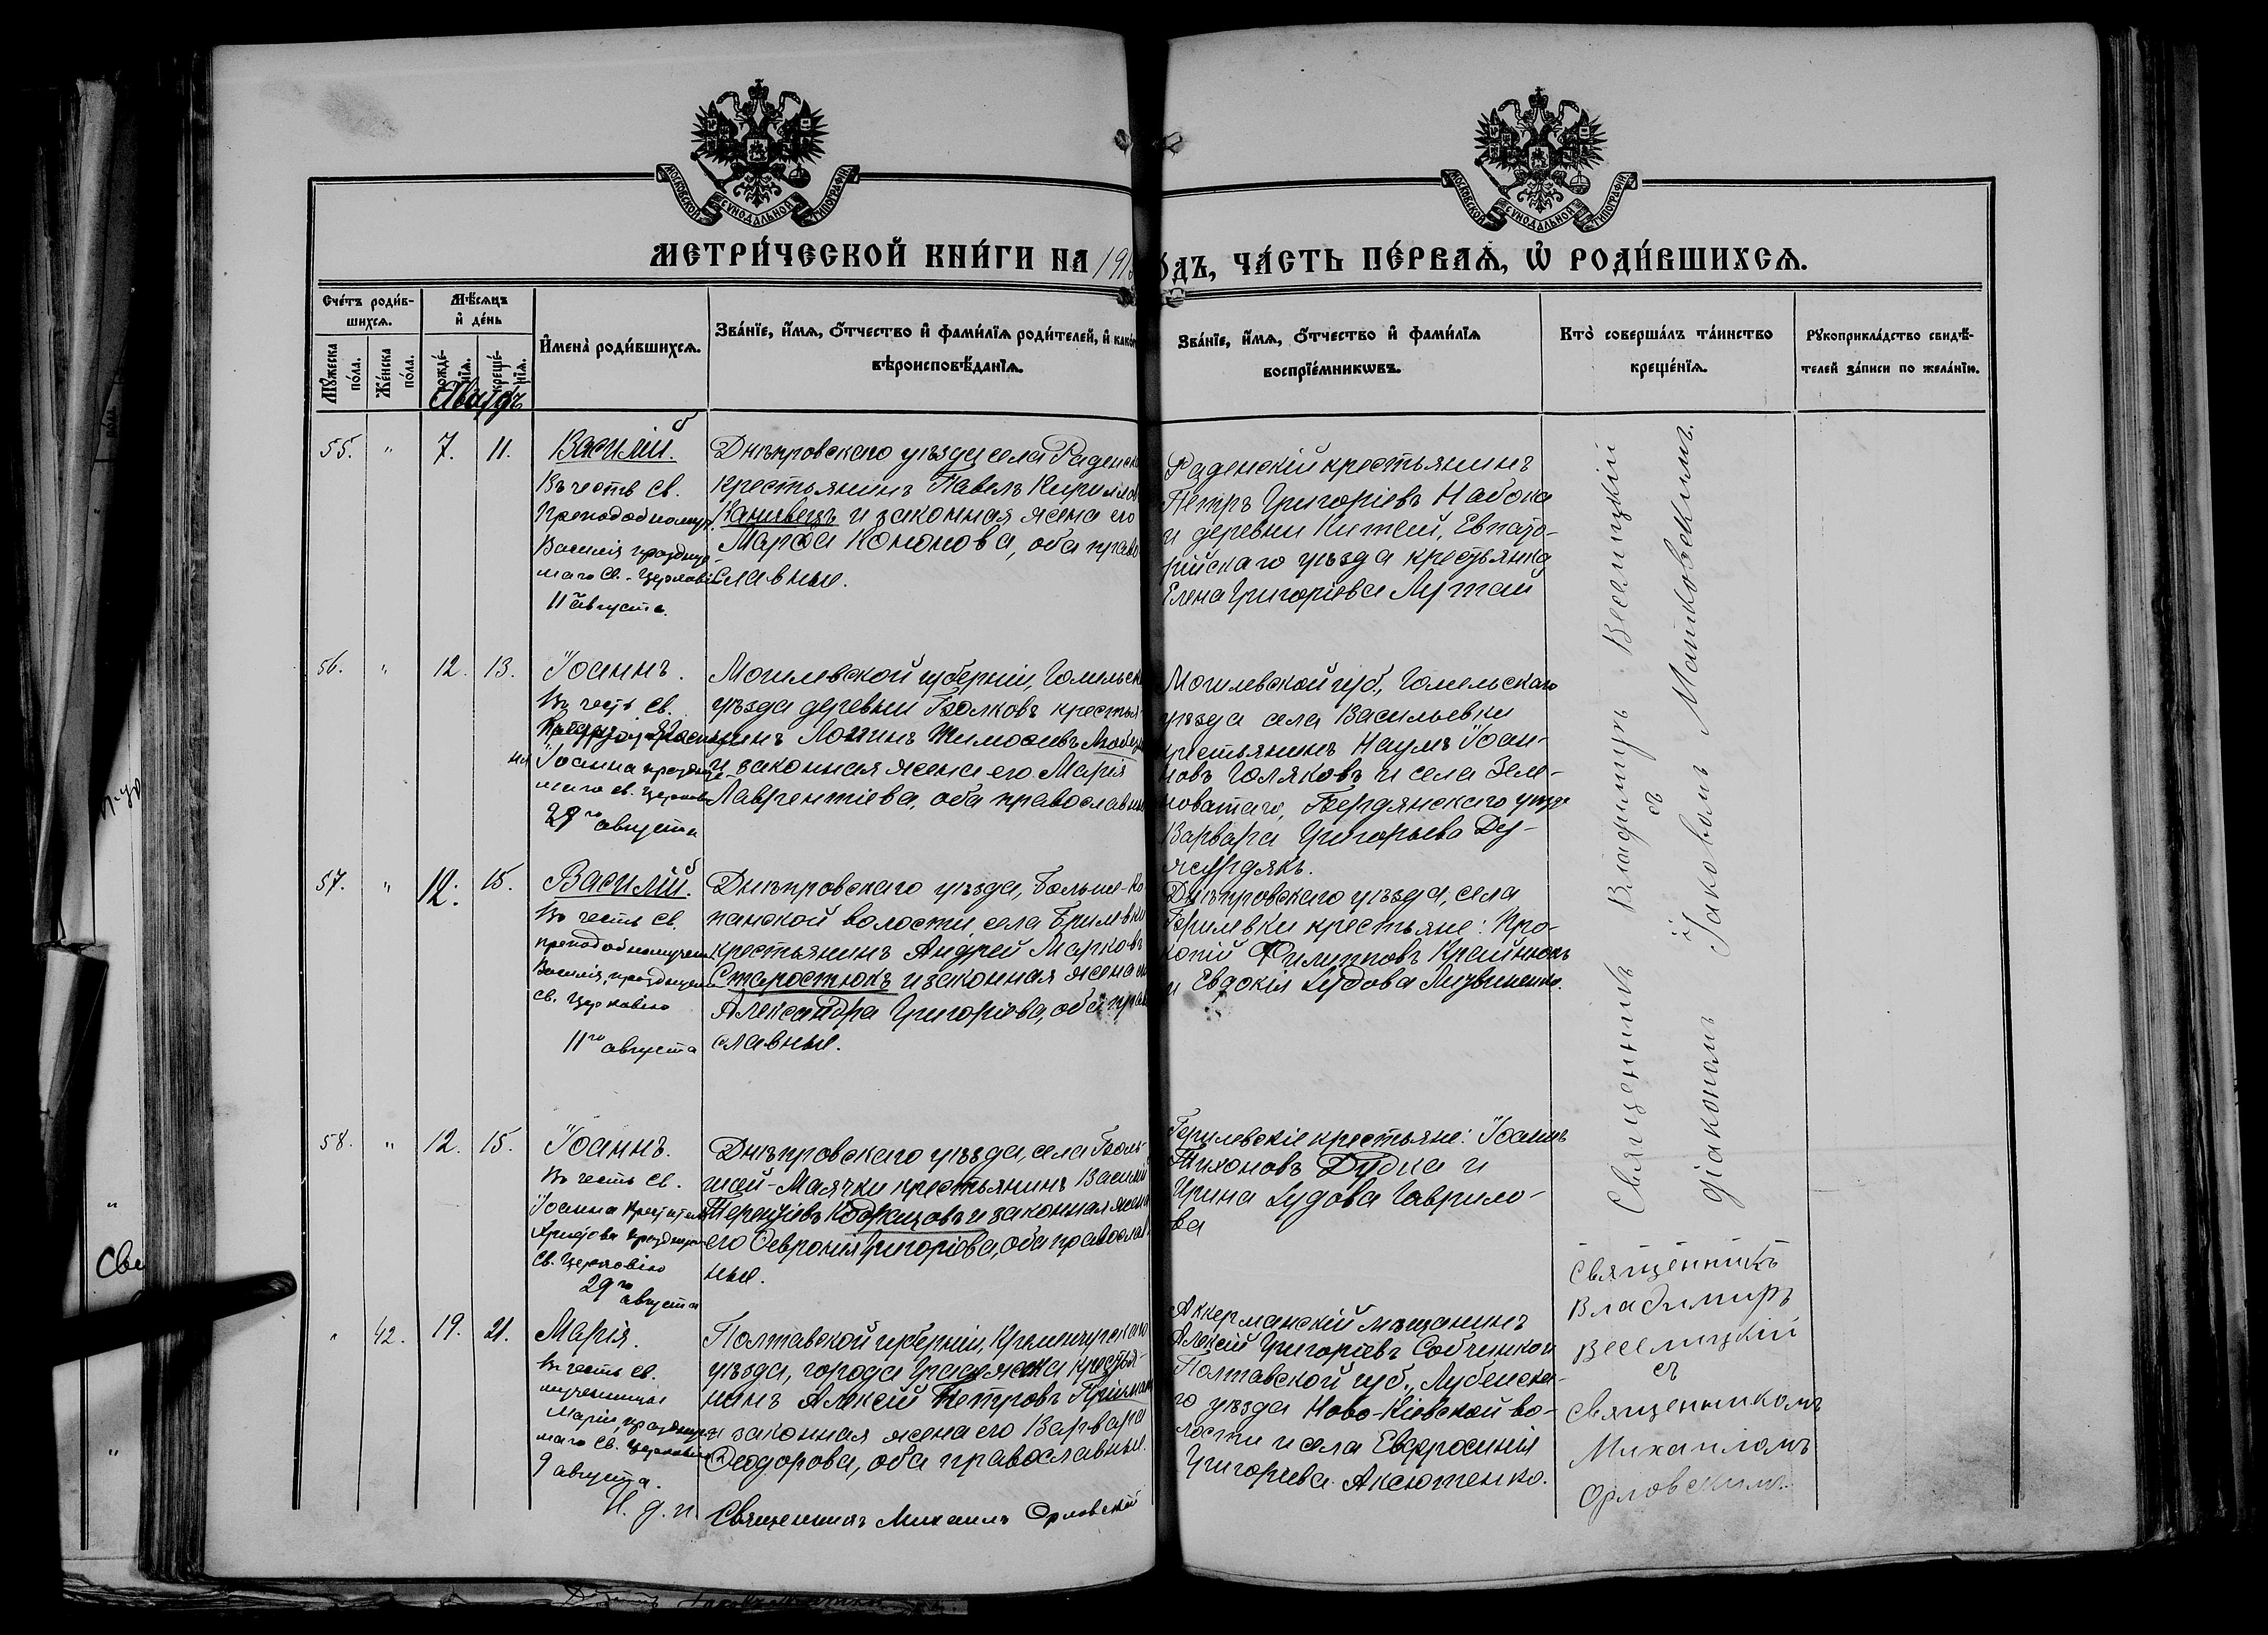 МОСКОВСКОЙ СУНОДАЛЬНОЙ ТИПОГРАФІИ
МОСКОВСКОЙ СУНОДАЛЬНОЙ ТИПОГРАФІИ
МЕТРИ́ЧЕСКОЙ КНИ́ГИ НА 191
ОДЪ, ЧА́СТЬ ПЕ́РВАѦ, Ѡ РОДИ́ВШИХСѦ.
Сче́тъ роди́в-
шихсѧ.
Мѣ́сѧцъ
и де́нь
Мꙋ́жеска по́ла.
Же́нска по́ла.
рожде́-
нїѧ.
креще́-
нїѧ.
Августъ
Имена̀ роди́вшихсѧ.
Зва́нїе, и́мѧ, о́тчество и фами́лїѧ роди́телей, и како́
вѣроисповѣ́данїѧ.
Зва́нїе, и́мѧ, о́тчество и фами́лїѧ
воспрїе́мникѡвъ.
Кто̀ соверша́лъ та́инство
креще́нїѧ.
Рꙋкоприкла́дство свидѣ́-
телей за́писи по жела́нїю.
55. " 7. 11.
Василій.
Въ честь св.
Преподобномуч.
Василія праздную
маго св. Церковію
11 августа.
Днѣпровскаго уѣзда села Раденск
крестьянинъ Павелъ Кириллов
Канивецъ и законная жена его
Марѳа Кононова, оба право
славные.
Раденскій крестьянинъ
Петръ Григоріевъ Набока
и деревни Китай, Евпато-
рійскаго уѣзда крестьянка
Елена Григоріева Лутай
56. " 12. 13.
Іоаннъ.
Въ честь св.
Іоанна праздну
маго св. Церков
29го августа
Могилевской губерніи, Гомельск
уѣзда деревни Волковъ крестья
нинъ Логинъ Тимоѳеевъ
и законная жена его Марія
Лаврентіева, оба православны
Могилевской губ., Гомельскаго
уѣзда села Васильевки
крестьянинъ Наумъ Іоан-
новъ Голяковъ и села Зеле-
новатаго, Бердянскаго уѣзда
Варвара Григорьева Ду-
57. " 12. 15.
Василій.
Въ честь св.
преподобномучен
Василія, праздуем
св. Церковію
11го августа
Днѣпровскаго уѣзда, Больше-Ко
панской волости, села Брилевки
крестьянинъ Андрей Марковъ
Старостюкъ и законная жена его
Александра Григоріева, оба прав
славные.
Днѣпровскаго уѣзда, села
Брилевки крестьяне: Про-
копій Филипповъ Крайнюкъ
и Евдокія Іудова Лизвиненко.
58. " 12. 15.
Іоаннъ.
Въ честь св.
Іоанна Крестителя
св. Церковію
29го августа
Днѣпровскаго уѣзда, села Боль-
шой-Маячки крестьянинъ Василій
Терентіевъ и законная жена
его Ѳевронія Григоріева, оба православ
ные.
Брилевскіе крестьяне: Іоаннъ
Тихоновъ Дудка и
Ирина Іудова Гаврило-
ва
Священникъ Владиміръ Веселицкій
съ
діакономъ Іаковомъ Маньковскимъ.
" 42. 19. 21.
Марія.
Въ честь св.
мученицы
Маріи, празднуе
маго св. Церковію
9 августа.
Полтавской губерніи, Кременчугскаго
уѣзда, города Градижска крестья-
нинъ Алексій Петровъ
и законная жена его Варвара
Ѳеодорова, оба православные.
Аккерманскій мѣщанинъ
Алексій Григоріевъ Собченко и
Полтавской губ., Лубенска-
го уѣзда Ново-Кіевской во-
лости и села Евфросинія
Григоріева Аксютенко.
Священникъ
Владиміръ
Веселицкій
съ
Священникомъ
Михаиломъ
Орловскимъ.
И. д. п. Священникъ Михаилъ Орловскій